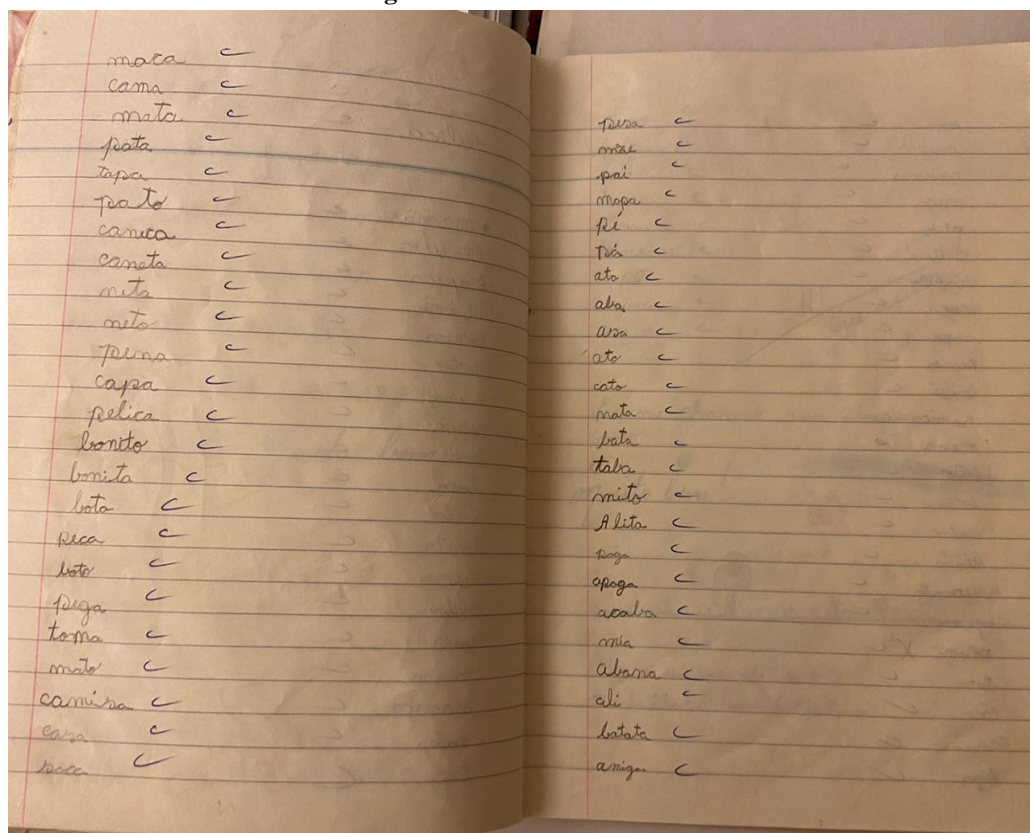 maca c
cama c
mata c
pata c
tapa c
pato c
caneca c
caneta c
neta c
neto c
pena c
capa c
pelica c
bonito c
bonita c
bota c
peca c
boto c
pega c
toma c
mato c
camisa c
casa c
saca c
pesa c
mãe c
pai c
mapa c
pé c
pá c
ata c
aba c
asa c
ato c
cato c
nata c
bata c
taba c
mito c
Alita c
paga c
apaga c
acaba c
mia c
abana c
ali c
batata c
amiga c